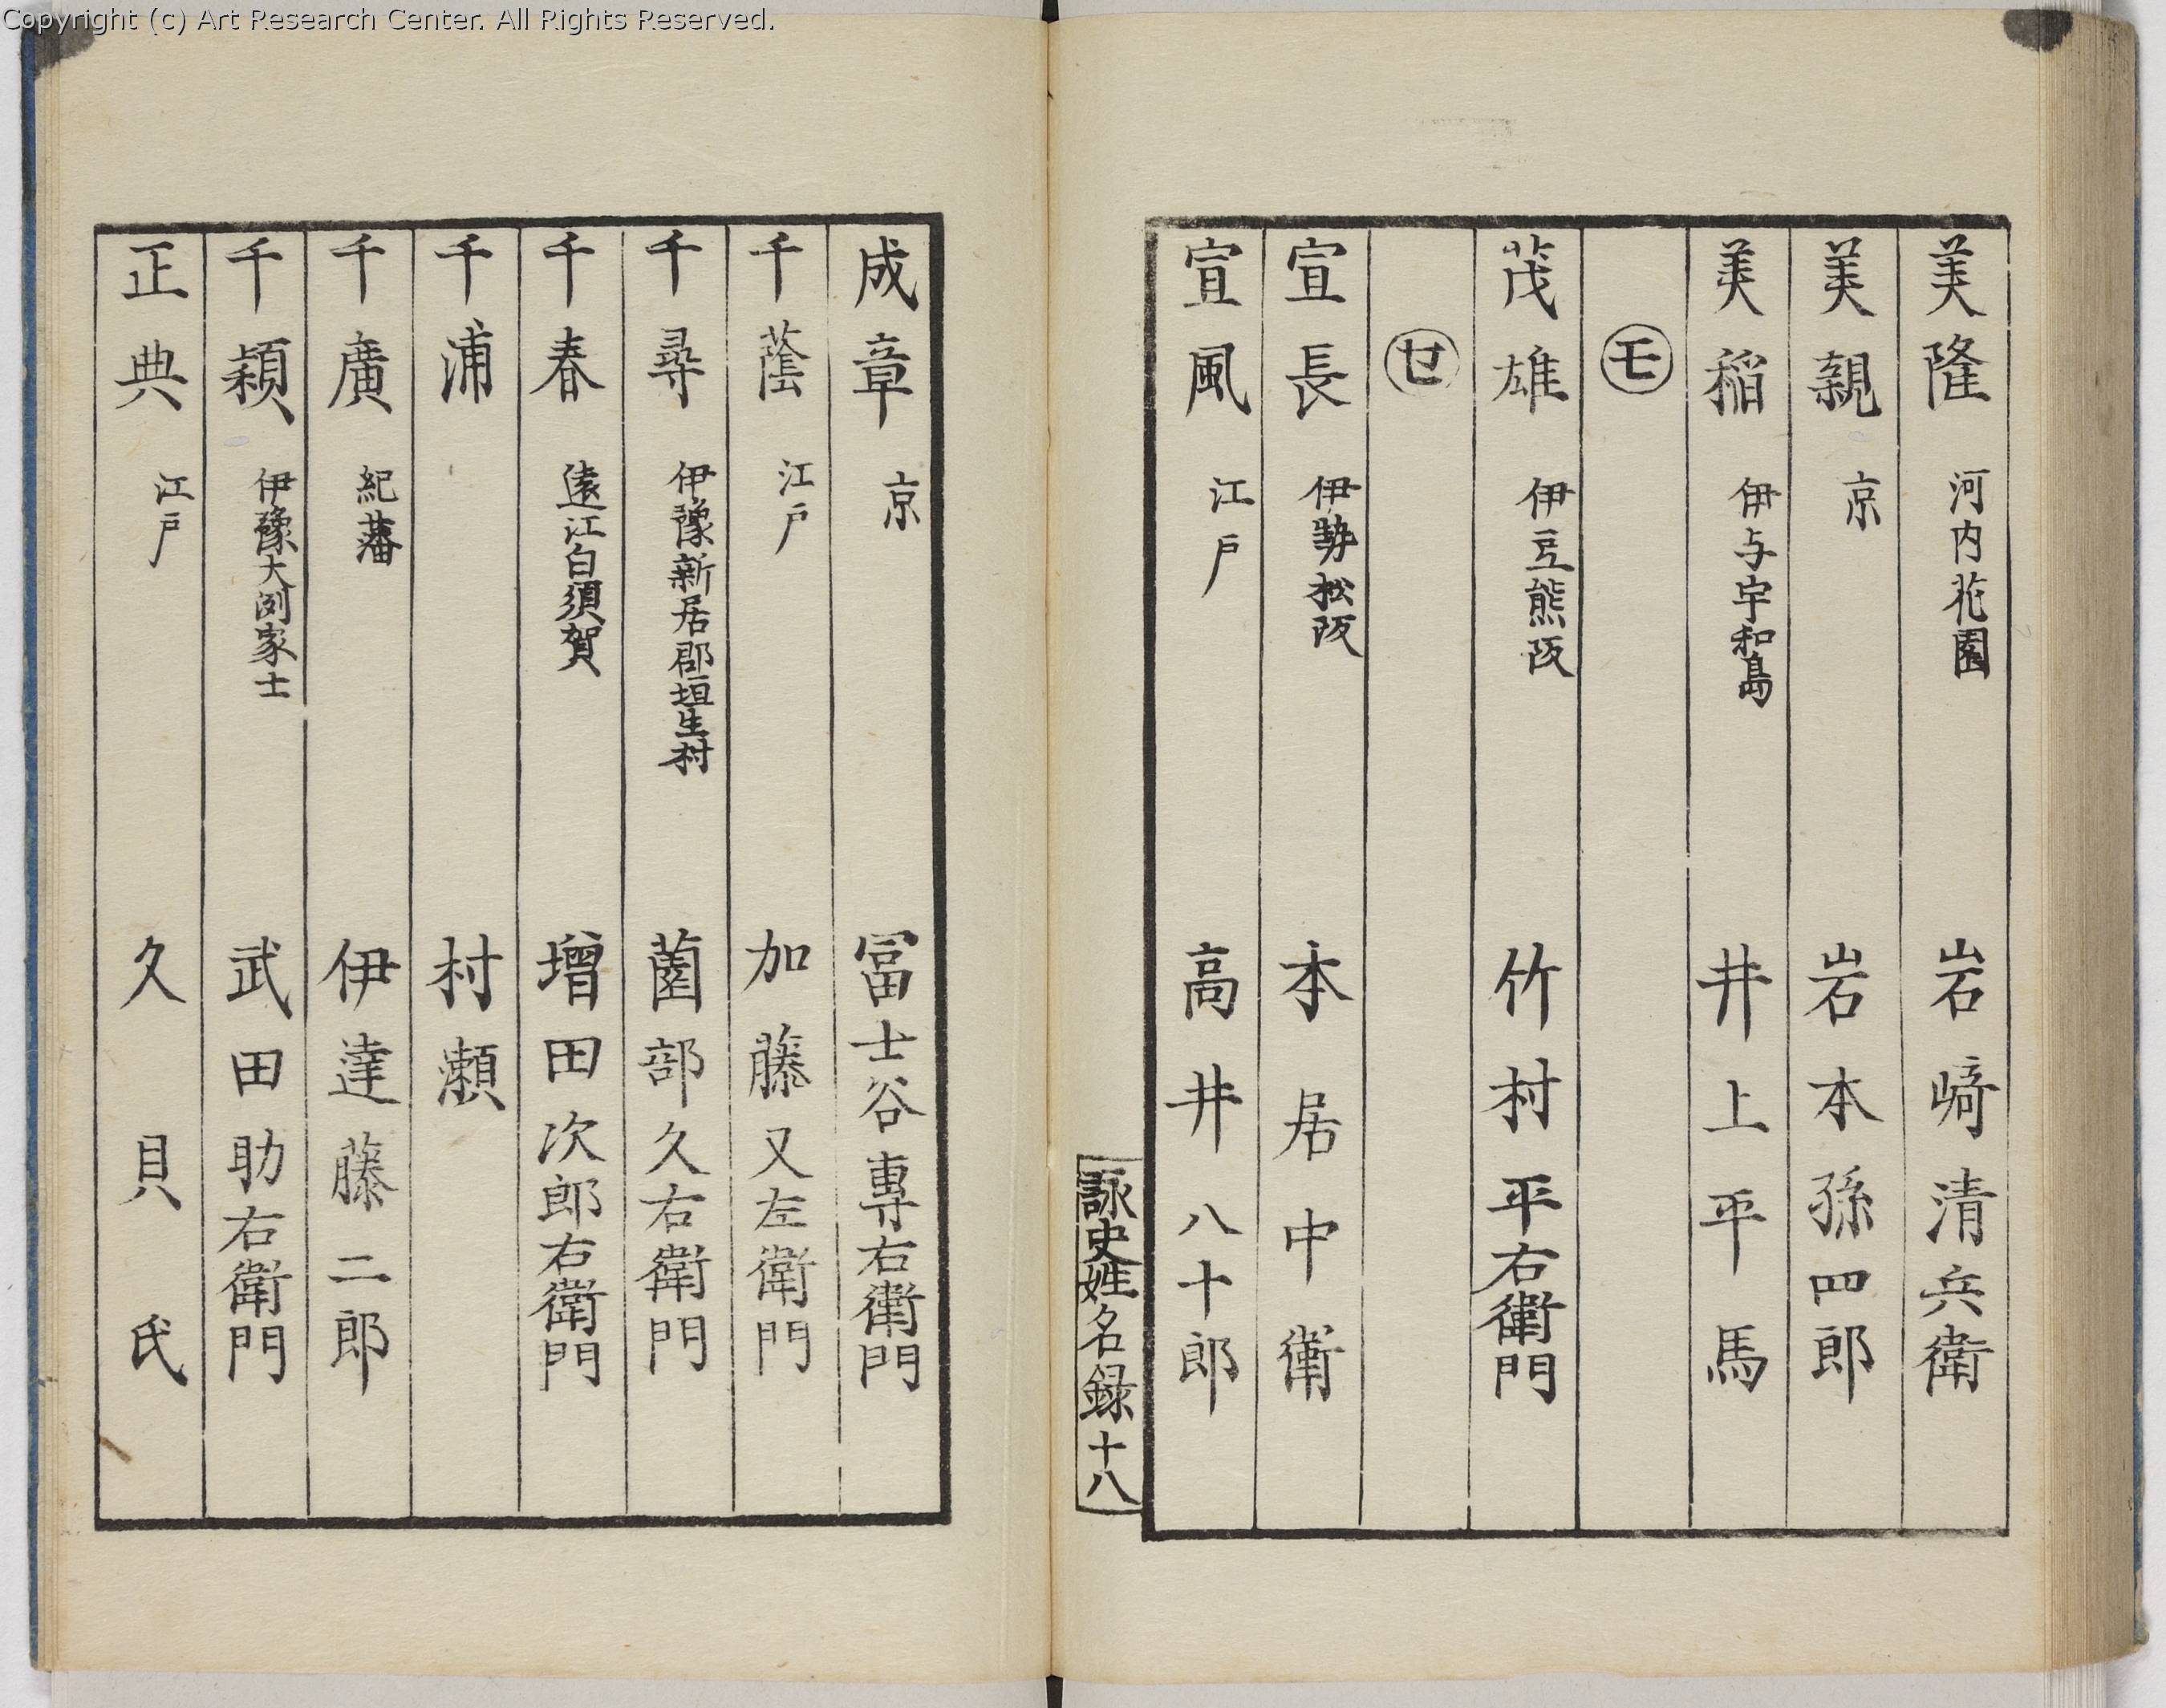 Copyright (c) Art Research Center. All Rights Reserved.
美隆 河内花園 岩﨑清兵衛
美親 京 岩本孫四郎
美稲 伊与宇和島 井上平馬
モ
茂雄 伊豆熊阪 竹村平右衛門
セ
宣長 伊勢松阪 本居中衛
宣風 江戸 高井八十郎
詠史姓名録 十八
成章 京 冨士谷專右衛門
千蔭 江戸 加藤又左衛門
千尋 伊豫新居郡垣生村 薗部久右衛門
千春 遠江白須賀 増田次郎右衛門
千浦 村瀬
千廣 紀藩 伊達藤二郎
千頴 伊豫大洌家士 武田助右衛門
正典 江戸 久貝氏